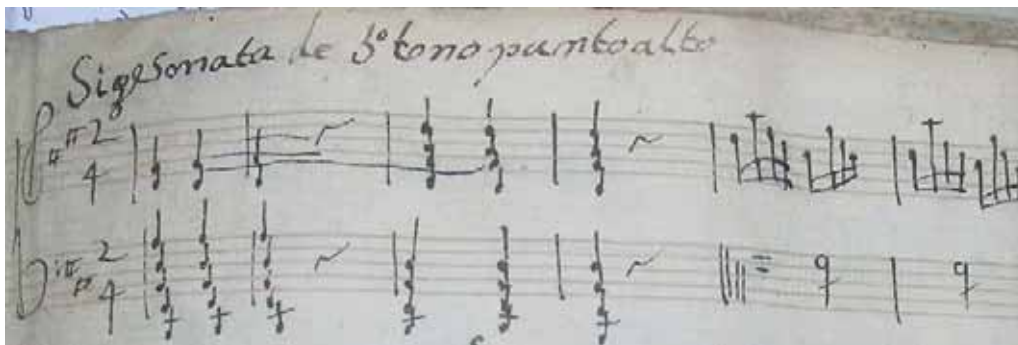 Sige Sonata de 5º tono punto alto
2
4
2
4